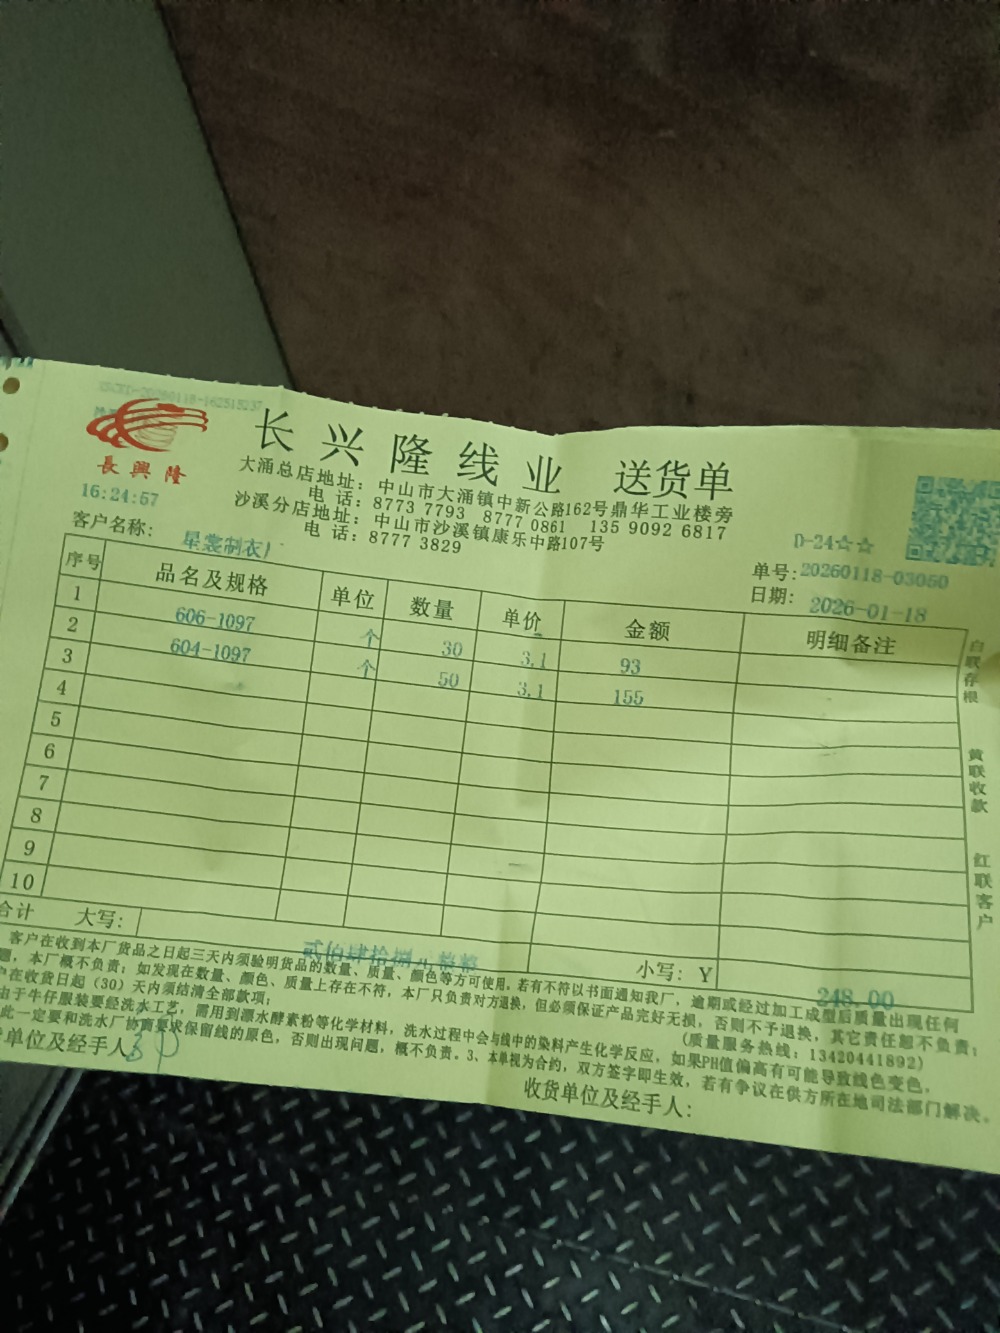 長興隆
长兴隆线业 送货单
大涌总店地址：中山市大涌镇中新公路162号鼎华工业楼旁
电话：8773 7793 8777 0861 135 9092 6817
沙溪分店地址：中山市沙溪镇康乐中路107号
电话：8777 3829
16:24:57
D-24☆☆
客户名称：星裳制衣厂
单号：20260118-03050
日期：2026-01-18
序号 品名及规格 单位 数量 单价 金额 明细备注
1 606-1097 个 30 3.1 93
2 604-1097 个 50 3.1 155
3
4
5
6
7
8
9
10
合计 大写：
小写：￥ 248.00
客户在收到本厂货品之日起三天内须验明货品的数量、质量、颜色等方可使用。若有不符以书面通知我厂，逾期或经过加工成型后质量出现任何
题，本厂概不负责；如发现在数量、颜色、质量上存在不符，本厂只负责对方退换，但必须保证产品完好无损，否则不予退换，其它责任恕不负责；
户在收货日起（30）天内须结清全部款项；（质量服务热线：13420441892）
由于牛仔服装要经洗水工艺，需用到漂水酵素粉等化学材料，洗水过程中会与线中的染料产生化学反应，如果PH值偏高有可能导致线色变色，
此一定要和洗水厂协商要求保留线的原色，否则出现问题，概不负责。3、本单视为合约，双方签字即生效，若有争议在供方所在地司法部门解决。
单位及经手人
收货单位及经手人：
白联存根
黄联收款
红联客户